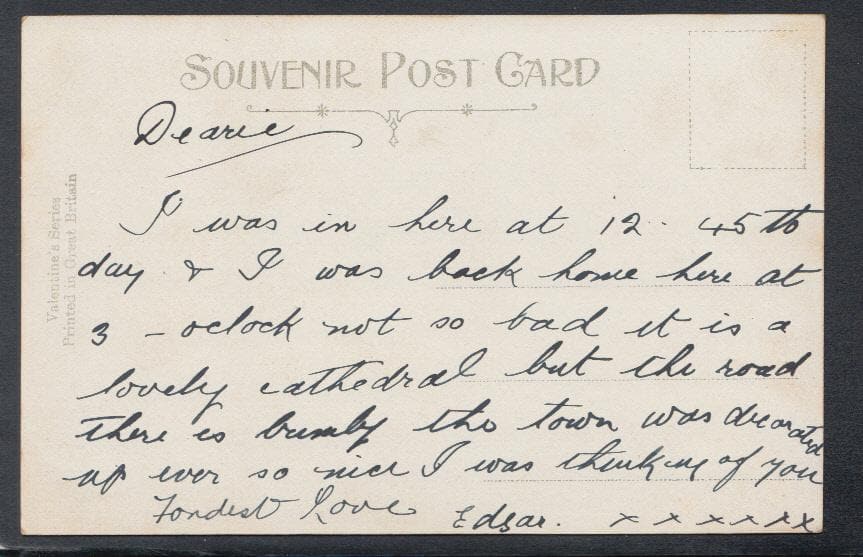 SOUVENIR POST CARD
Valentine's Series
Printed in Great Britain
Dearie
I was in here at 12.45 to
day & I was back home here at
3 - oclock not so bad it is a
lovely cathedral but the road
there is bumby the town was decorated
up ever so nice I was thinking of you
Fondest Love Edgar. x x x x x x